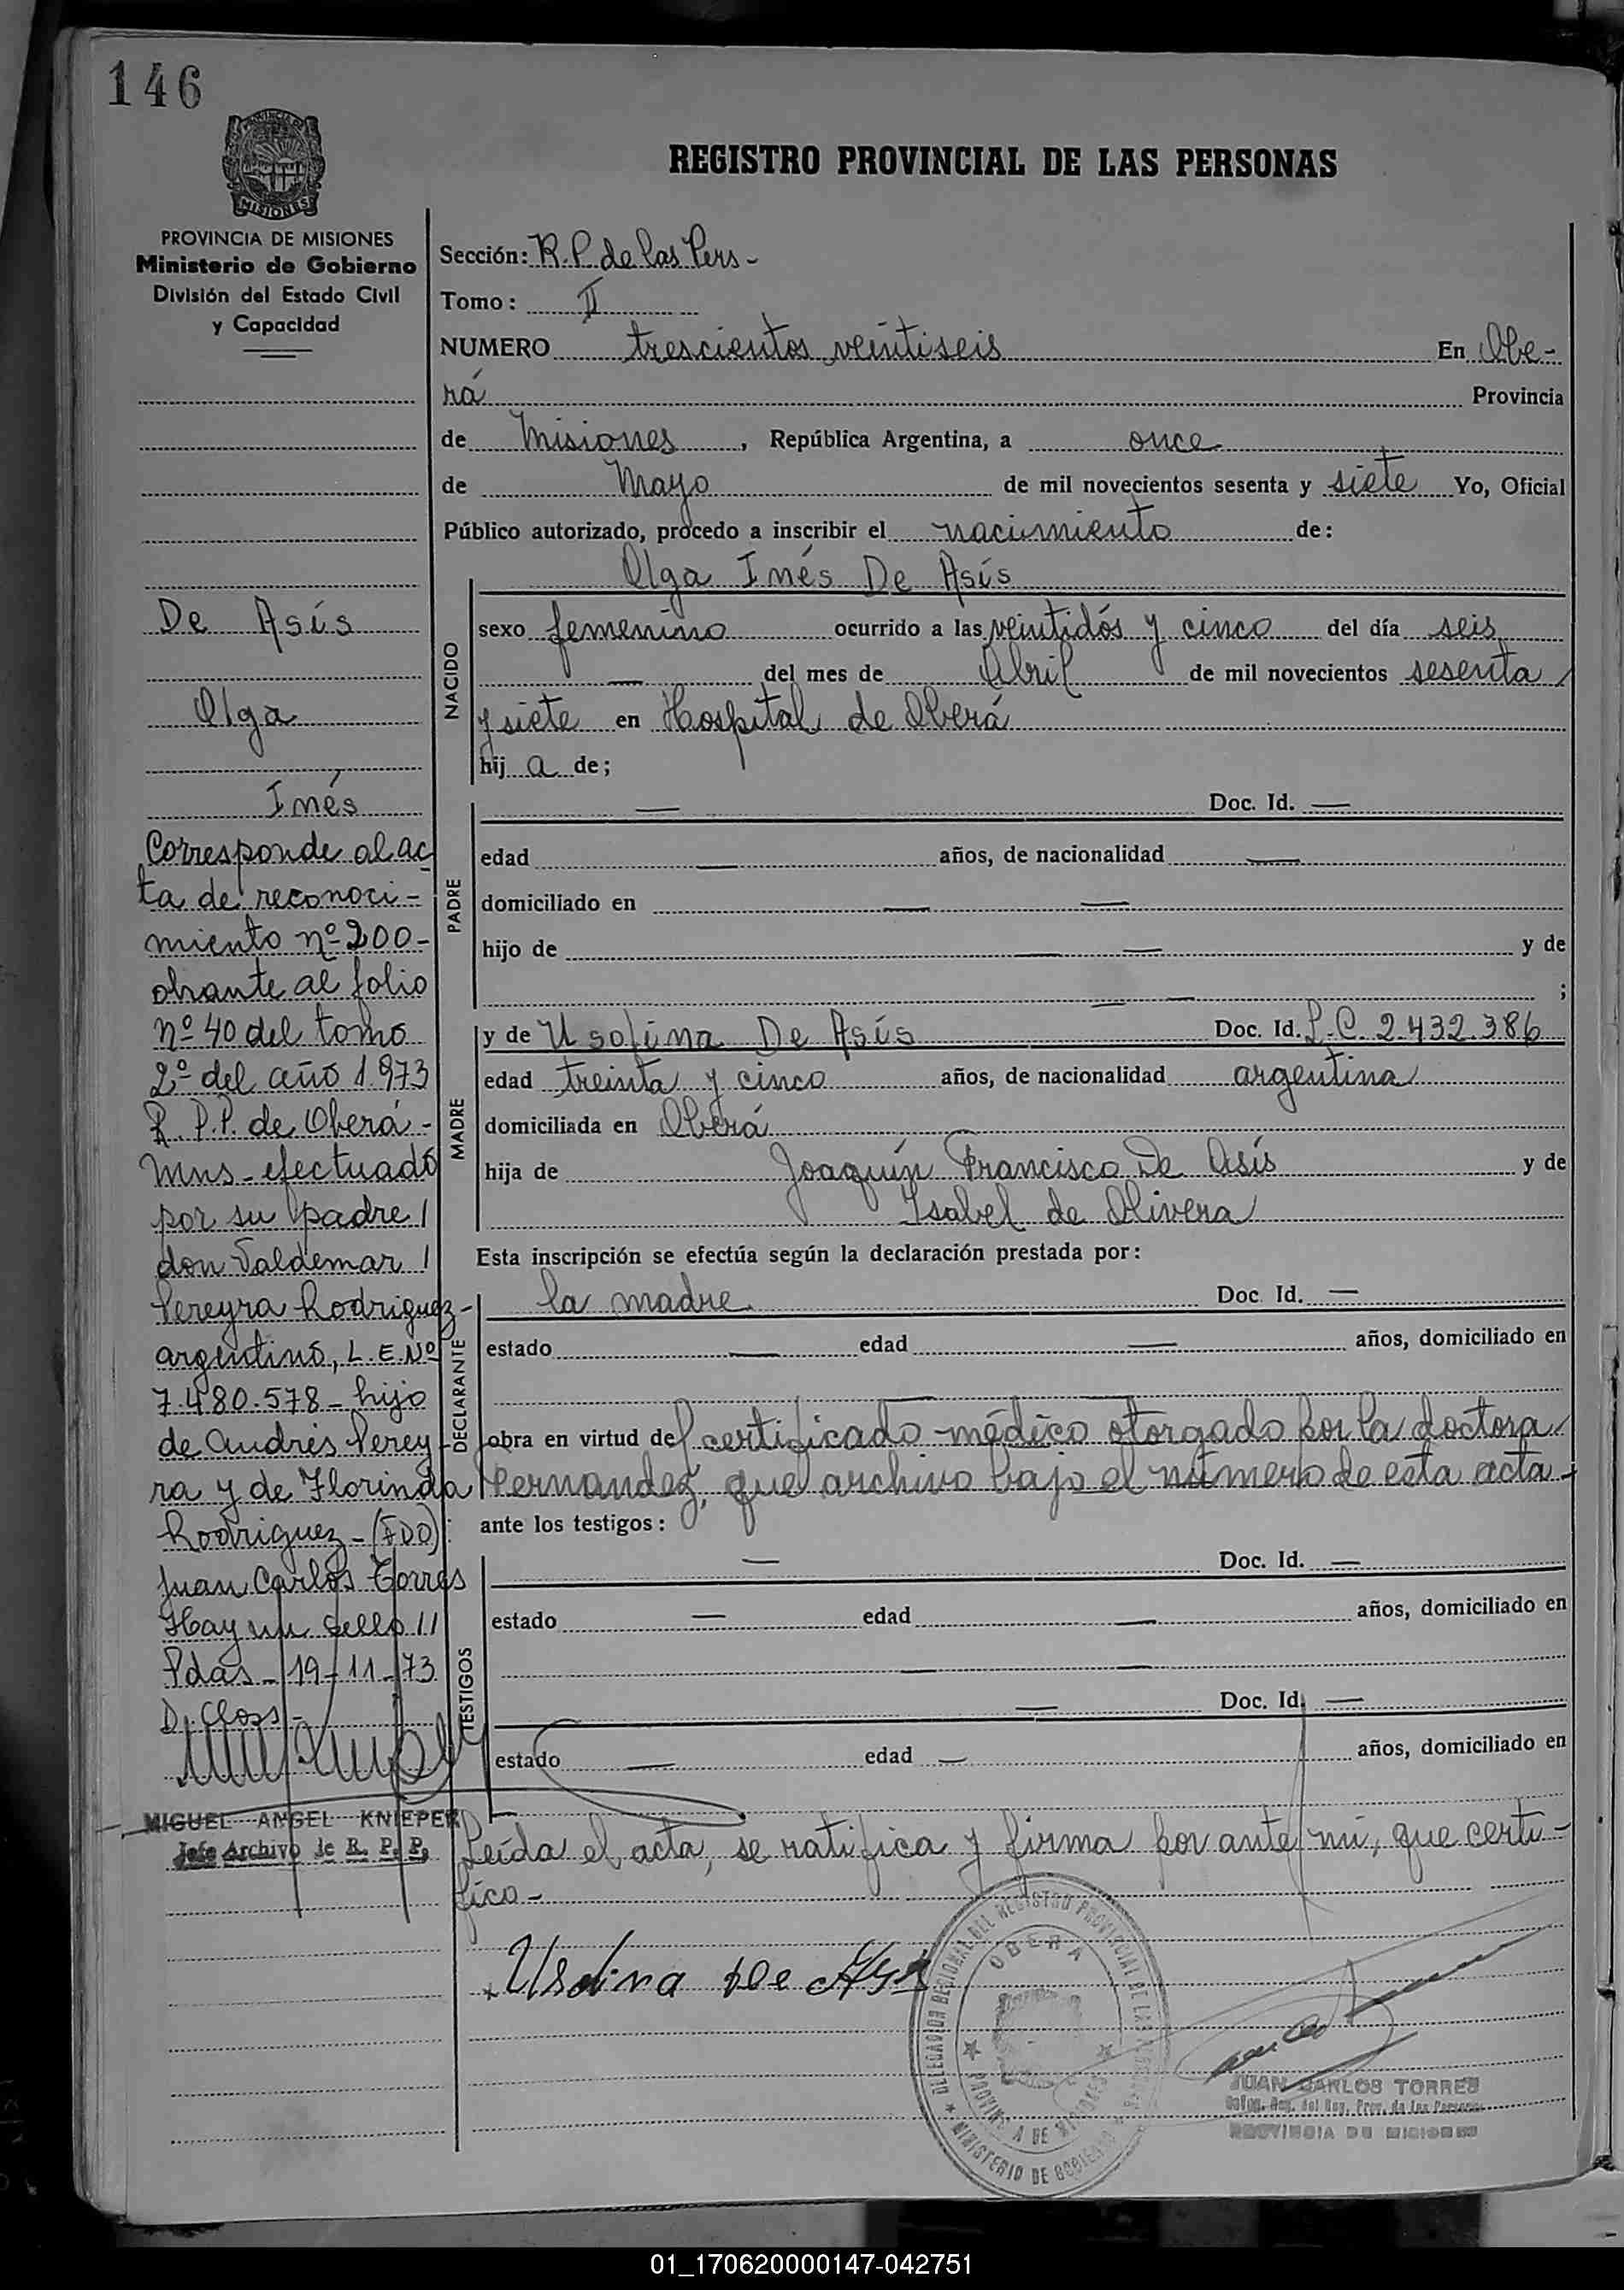 146
PROVINCIA DE
MISIONES
REGISTRO PROVINCIAL DE LAS PERSONAS
PROVINCIA DE MISIONES
Ministerio de Gobierno
División del Estado Civil
y Capacidad
De Asís
Olga
Inés
Corresponde al ac
ta de reconoci-
miento nº 200-
obrante al folio
nº 40 del tomo
2º del año 1.973
R.P.P. de Oberá-
Mns- efectuado
por su padre/
don Valdemar/
Pereyra Rodriguez-
argentino, L.E.Nº
7.480.578- hijo
de Andrés Perey-
ra y de Florinda
Rodriguez-(FDO):
Juan Carlos Torres
Hay un sello//
Pdas- 19-11-73
D. Closs-
MIGUEL ANGEL KNIEPER
Jefe Archivo de R. P. P.
Sección: R.P. de las Pers-
Tomo: II
NUMERO trescientos veintiseis En Obe-
rá Provincia
de Misiones, República Argentina, a once
de Mayo de mil novecientos sesenta y siete Yo, Oficial
Público autorizado, procedo a inscribir el nacimiento de:
Olga Inés De Asís
NACIDO
sexo femenino ocurrido a las veintidós y cinco del día seis
— del mes de Abril de mil novecientos sesenta
y siete en Hospital de Oberá
hij a de;
PADRE
— Doc. Id. —
edad — años, de nacionalidad —
domiciliado en — —
hijo de — — y de
— — ;
MADRE
y de Usolina De Asís Doc. Id. L.C. 2.432.386
edad treinta y cinco años, de nacionalidad argentina
domiciliada en Oberá
hija de Joaquín Francisco De Asís y de
Isabel de Olivera
Esta inscripción se efectúa según la declaración prestada por:
DECLARANTE
la madre Doc. Id. —
estado — edad — años, domiciliado en
— —
obra en virtud del certificado médico otorgado por la doctora
Fernandez, que archivo bajo el número de esta acta-
ante los testigos:
TESTIGOS
— Doc. Id. —
estado — edad — años, domiciliado en
— —
— Doc. Id. —
estado — edad — años, domiciliado en
—
Leída el acta, se ratifica y firma por ante mí, que certi-
fico-
Usolina De Asis
DELEGACION REGIONAL DEL REGISTRO PROVINCIAL DE LAS PERSONAS
OBERA
PROVINCIA DE MISIONES
MINISTERIO DE GOBIERNO
JUAN CARLOS TORRES
Deleg. Reg. del Reg. Prov. de las Personas
PROVINCIA DE MISIONES
01_170620000147-042751